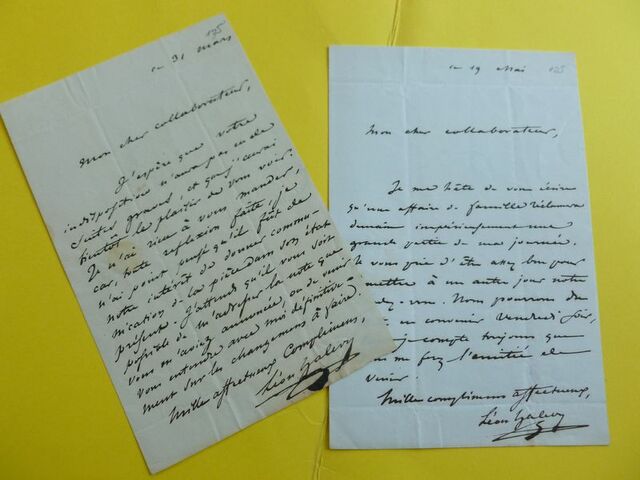 175
ce 31 mars
Mon cher collaborateur,
J'espère que votre
indisposition n'aura pas eu de
suites graves, et que j'aurai
bientôt le plaisir de vous voir.
Je n'ai rien à vous mander,
car, toute réflexion faite, je
n'ai point pensé qu'il fût de
notre intérêt de donner commu-
nication de la pièce dans son état
présent. J'attends qu'il vous soit
possible de m'adresser la note que
vous m'aviez annoncée, ou de venir
vous entendre avec moi définitive-
ment sur les changemens à faire
Mille affectueux complimens,
Léon Halévy
175
ce 19 Mai
Mon cher collaborateur,
Je me hâte de vous écrire
qu'une affaire de famille réclamera
demain impérieusement une
grande partie de ma journée.
Je vous prie d'être assez bon pour
remettre à un autre jour notre
rendez-vous. Nous pourrons
en convenir Vendredi soir,
je compte toujours que
me ferez l'amitié de
venir.
Mille complimens affectueux,
Léon Halévy